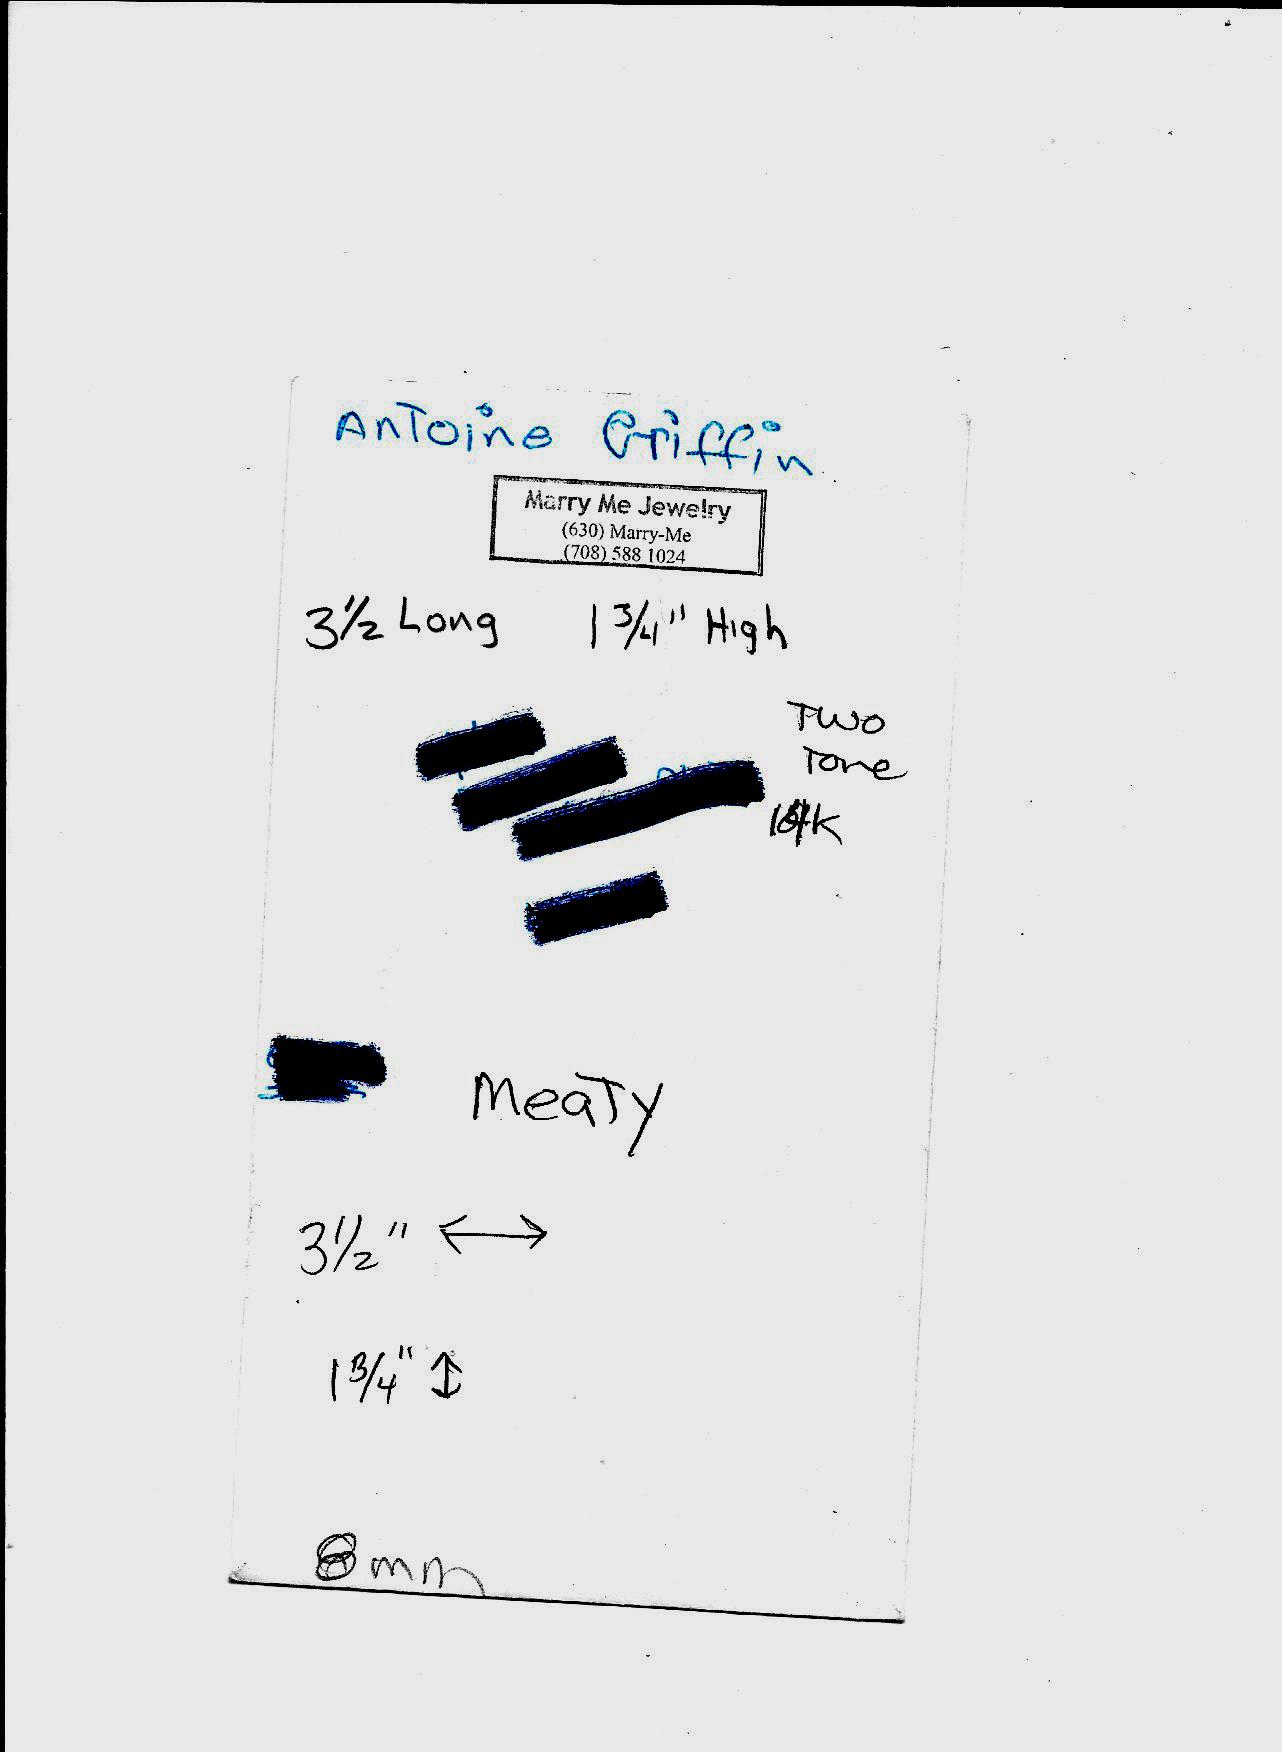 AnToine Griffin
Marry Me Jewelry
(630) Marry-Me
(708) 588 1024
3 1/2 Long 1 3/4" High
Two
Tone
MeaTy
3 1/2" ↔
1 3/4" ↕
8mm